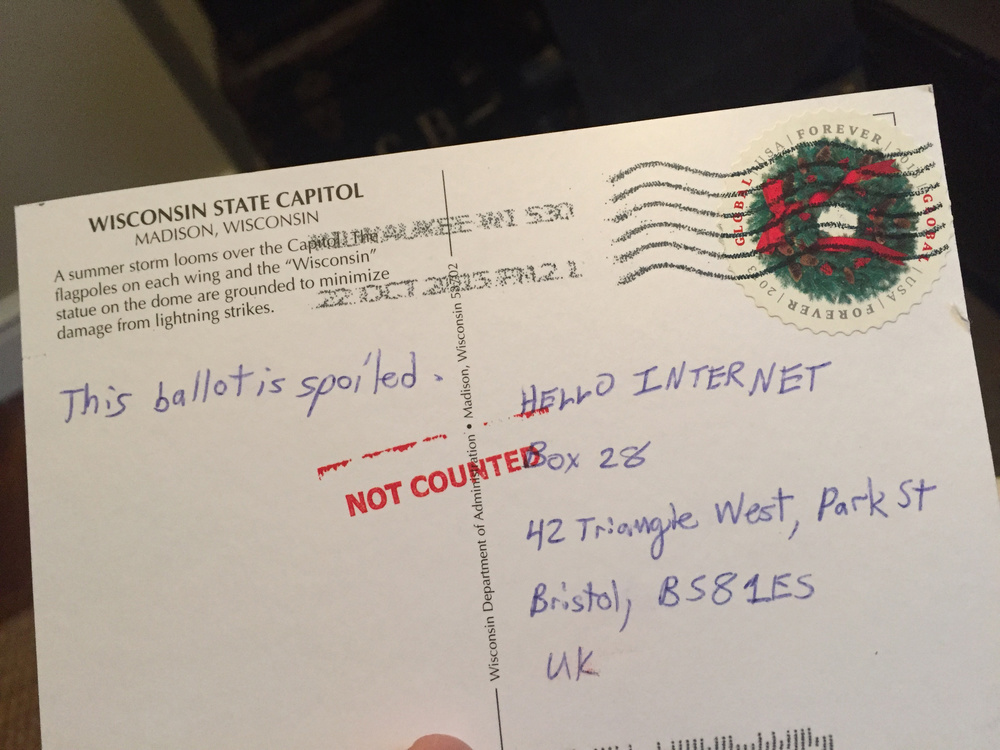 WISCONSIN STATE CAPITOL
MADISON, WISCONSIN
A summer storm looms over the Capitol. The
flagpoles on each wing and the “Wisconsin”
statue on the dome are grounded to minimize
damage from lightning strikes.
MILWAUKEE WI 530
22 OCT 2015 PM 2 L
GLOBAL USA | FOREVER | 2013
GLOBAL USA | FOREVER | 2013
This ballot is spoiled.
NOT COUNTED
Wisconsin Department of Administration • Madison, Wisconsin 53702
HELLO INTERNET
Box 28
42 Triangle West, Park St
Bristol, BS8 1ES
UK